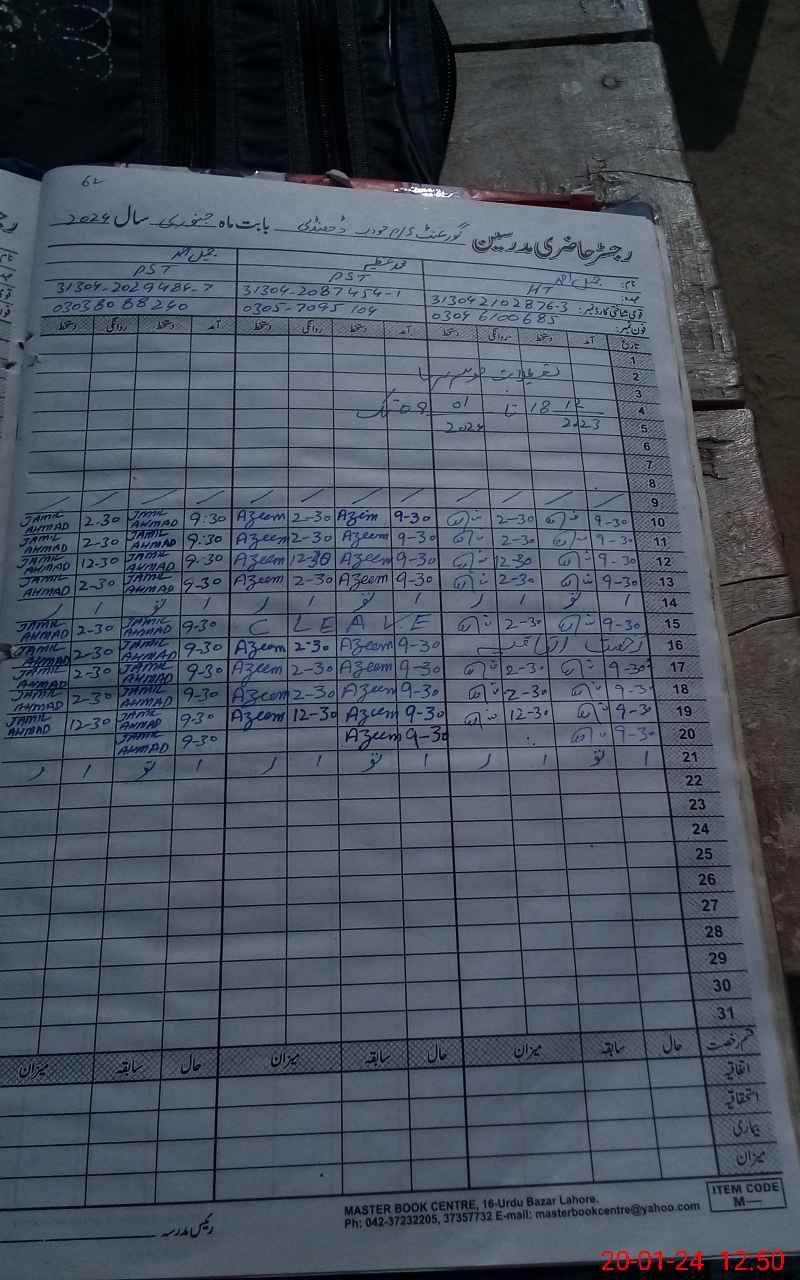 62
رجسٹر حاضری مدرسین گورنمنٹ P/S ڈھنڈی بابت ماہ جنوری سال 2024
نام: جمیل احمد محمد عظیم جمیل احمد
عہدہ: HT PST PST
قومی شناختی کارڈ نمبر: 313042102876-3 31304-2087454-1 31304-2029484-7
فون نمبر: 0304 6100685 0305-7095104 03038068240
تاریخ آمد دستخط روانگی دستخط آمد دستخط روانگی دستخط آمد دستخط روانگی دستخط
1
2 تعطیلات موسم سرما
3
4 18 12/2023 تا 09 01/2024 تک
5
6
7
8
9
10 9-30 2-30 9-30 Azeem 2-30 Azeem 9:30 JAMIL AHMAD 2-30 JAMIL AHMAD
11 9-30 2-30 9-30 Azeem 2-30 Azeem 9:30 JAMIL AHMAD 2-30 JAMIL AHMAD
12 9-30 12-30 9-30 Azeem 12-30 Azeem 9:30 JAMIL AHMAD 12-30 JAMIL AHMAD
13 9-30 2-30 9-30 Azeem 2-30 Azeem 9-30 JAMIL AHMAD 2-30 JAMIL AHMAD
14 ا تو ا ر ا تو ا ر ا تو ا ر
15 9-30 2-30 C LEAVE 9-30 JAMIL AHMAD 2-30 JAMIL AHMAD
16 رخصت اتفاقیہ 9-30 Azeem 2-30 Azeem 9-30 JAMIL AHMAD 2-30 JAMIL AHMAD
17 9-30 2-30 9-30 Azeem 2-30 Azeem 9-30 JAMIL AHMAD 2-30 JAMIL AHMAD
18 9-30 2-30 9-30 Azeem 2-30 Azeem 9-30 JAMIL AHMAD 2-30 JAMIL AHMAD
19 9-30 12-30 9-30 Azeem 12-30 Azeem 9-30 JAMIL AHMAD 12-30 JAMIL AHMAD
20 9-30 9-30 Azeem 9-30 JAMIL AHMAD
21 ا تو ا ر ا تو ا ر ا تو ا ر
22
23
24
25
26
27
28
29
30
31
قسم رخصت حال سابقہ میزان حال سابقہ میزان حال سابقہ میزان
اتفاقیہ
استحقاقیہ
بیماری
میزان
رئیس مدرسہ
MASTER BOOK CENTRE, 16-Urdu Bazar Lahore.
Ph: 042-37232205, 37357732 E-mail: masterbookcentre@yahoo.com
ITEM CODE
M—
20-01-24 12:50